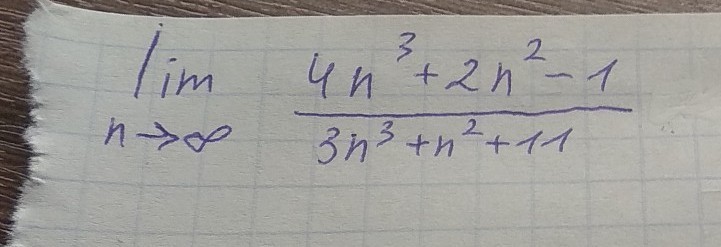 lim 4n³+2n²-1
n→∞ 3n³+n²+11